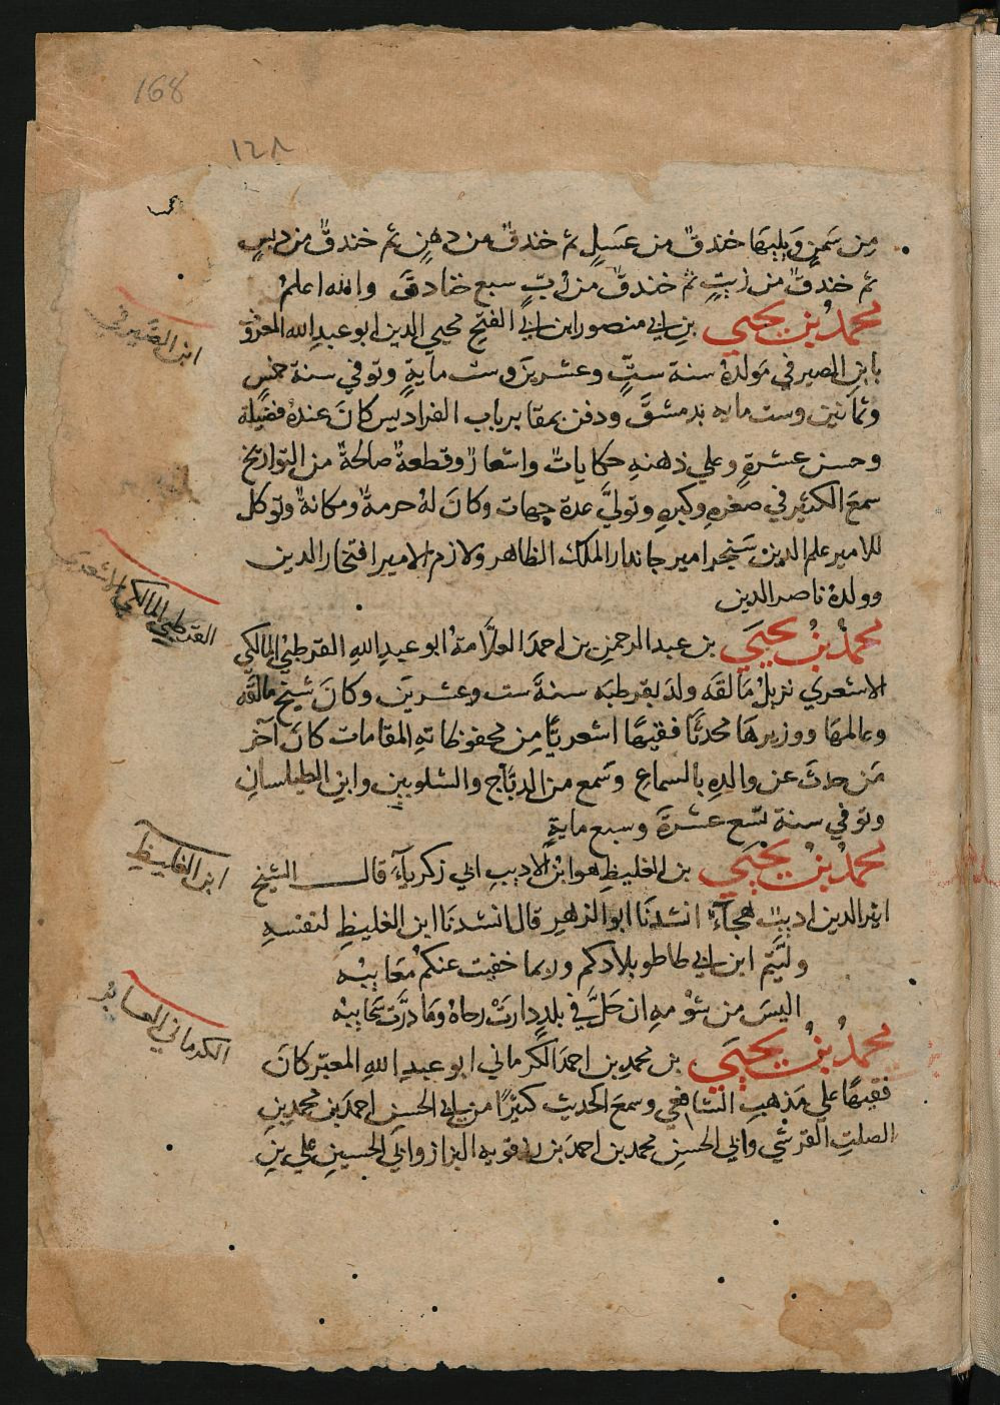 168
١٢٨
مِن سَمنٍ وَيليهَا خندقٌ من عَسَلٍ ثم خندقٌ من دهنٍ ثم خندقٌ من دبسٍ
ثم خندقٌ من زيتٍ ثم خندقٌ من رُبٍّ سبع خنادقَ والله اعلمُ
محمدُ بنُ يحيى بن ابي منصور ابن ابي الفتح محيي الدين ابو عبدِ الله المعروفُ
ابن الصَّيرفي
بابنِ الصيرفي مَولدهُ سنة ستٍّ وعشرينَ وست مايةٍ وتوفي سنة خمسٍ
وثمانين وست مايه بدمشقَ ودفن بمقابر باب الفراديس كانَ عندهُ فضيلة
وحسن عشرةٍ وعلي ذهنهِ حكاياتٌ واشعارٌ وقطعةٌ صالحةٌ من التواريخ
سمعَ الكثير في صغرهِ وكبرهِ وتوليَّ عدة جهات وكانَ لهُ حرمةٌ ومكانةٌ وتوكل
للامير علم الدين سَنجر امير جاندار الملك الظاهر ولازم الامير افتخار الدين
وولدهُ ناصر الدين
القرطبي المالكي الاشعري
محمدُ بنُ يحيَى بن عبد الرحمنِ بن احمدَ العلَّامةُ ابو عبدِ اللهِ القرطبيُ المالكي
الاشعري نزيلُ مَالقَه ولدَ بقرطبَه سنةَ ست وعشرينَ وكانَ شيخَ مالقَه
وعالمهَا ووزيرهَا محدثًا فقيهًا اشعريًّا مِن محفوظاتهِ المقامات كانَ آخر
مَن حدثَ عن والدهِ بالسماعِ وَسَمع من الدبَّاج والشلوبين وابنِ الطيلسانِ
وتوفي سنة تسع عشرةَ وسبع مايةٍ
ابن الغليظِ
محمدُ بنُ يحيَى بن الغليظِ هو ابنُ الاديبِ ابي زكرياءَ قال الشيخ
اثير الدين اديبٌ هجاءٌ انشدنَا ابو الزهير قال انشدنَا ابن الغليظِ لنفسهِ
وليَّتم ابن ابي طاطو بلادكم ولربما خفيت عنكمُ مَعَايبُه
اليسَ من شؤمهِ ان حَلَّ في بلدٍ دارتْ رحاهُ وَمَا درَّت سَحَايبُه
الكرماني المعبر
محمدُ بنُ يحيَى بن محمدِ بن احمدَ الكرماني ابو عبدِ اللهِ المعبّر كانَ
فقيهًا علي مَذهبِ الشافعي وسمعَ الحديث كثيرًا من ابي الحسنِ احمدَ بن محمد بنِ
الصلتِ القرشي وابي الحسنِ محمد بن احمدَ بن رزقويه البزاز وابي الحسينِ علي بنِ